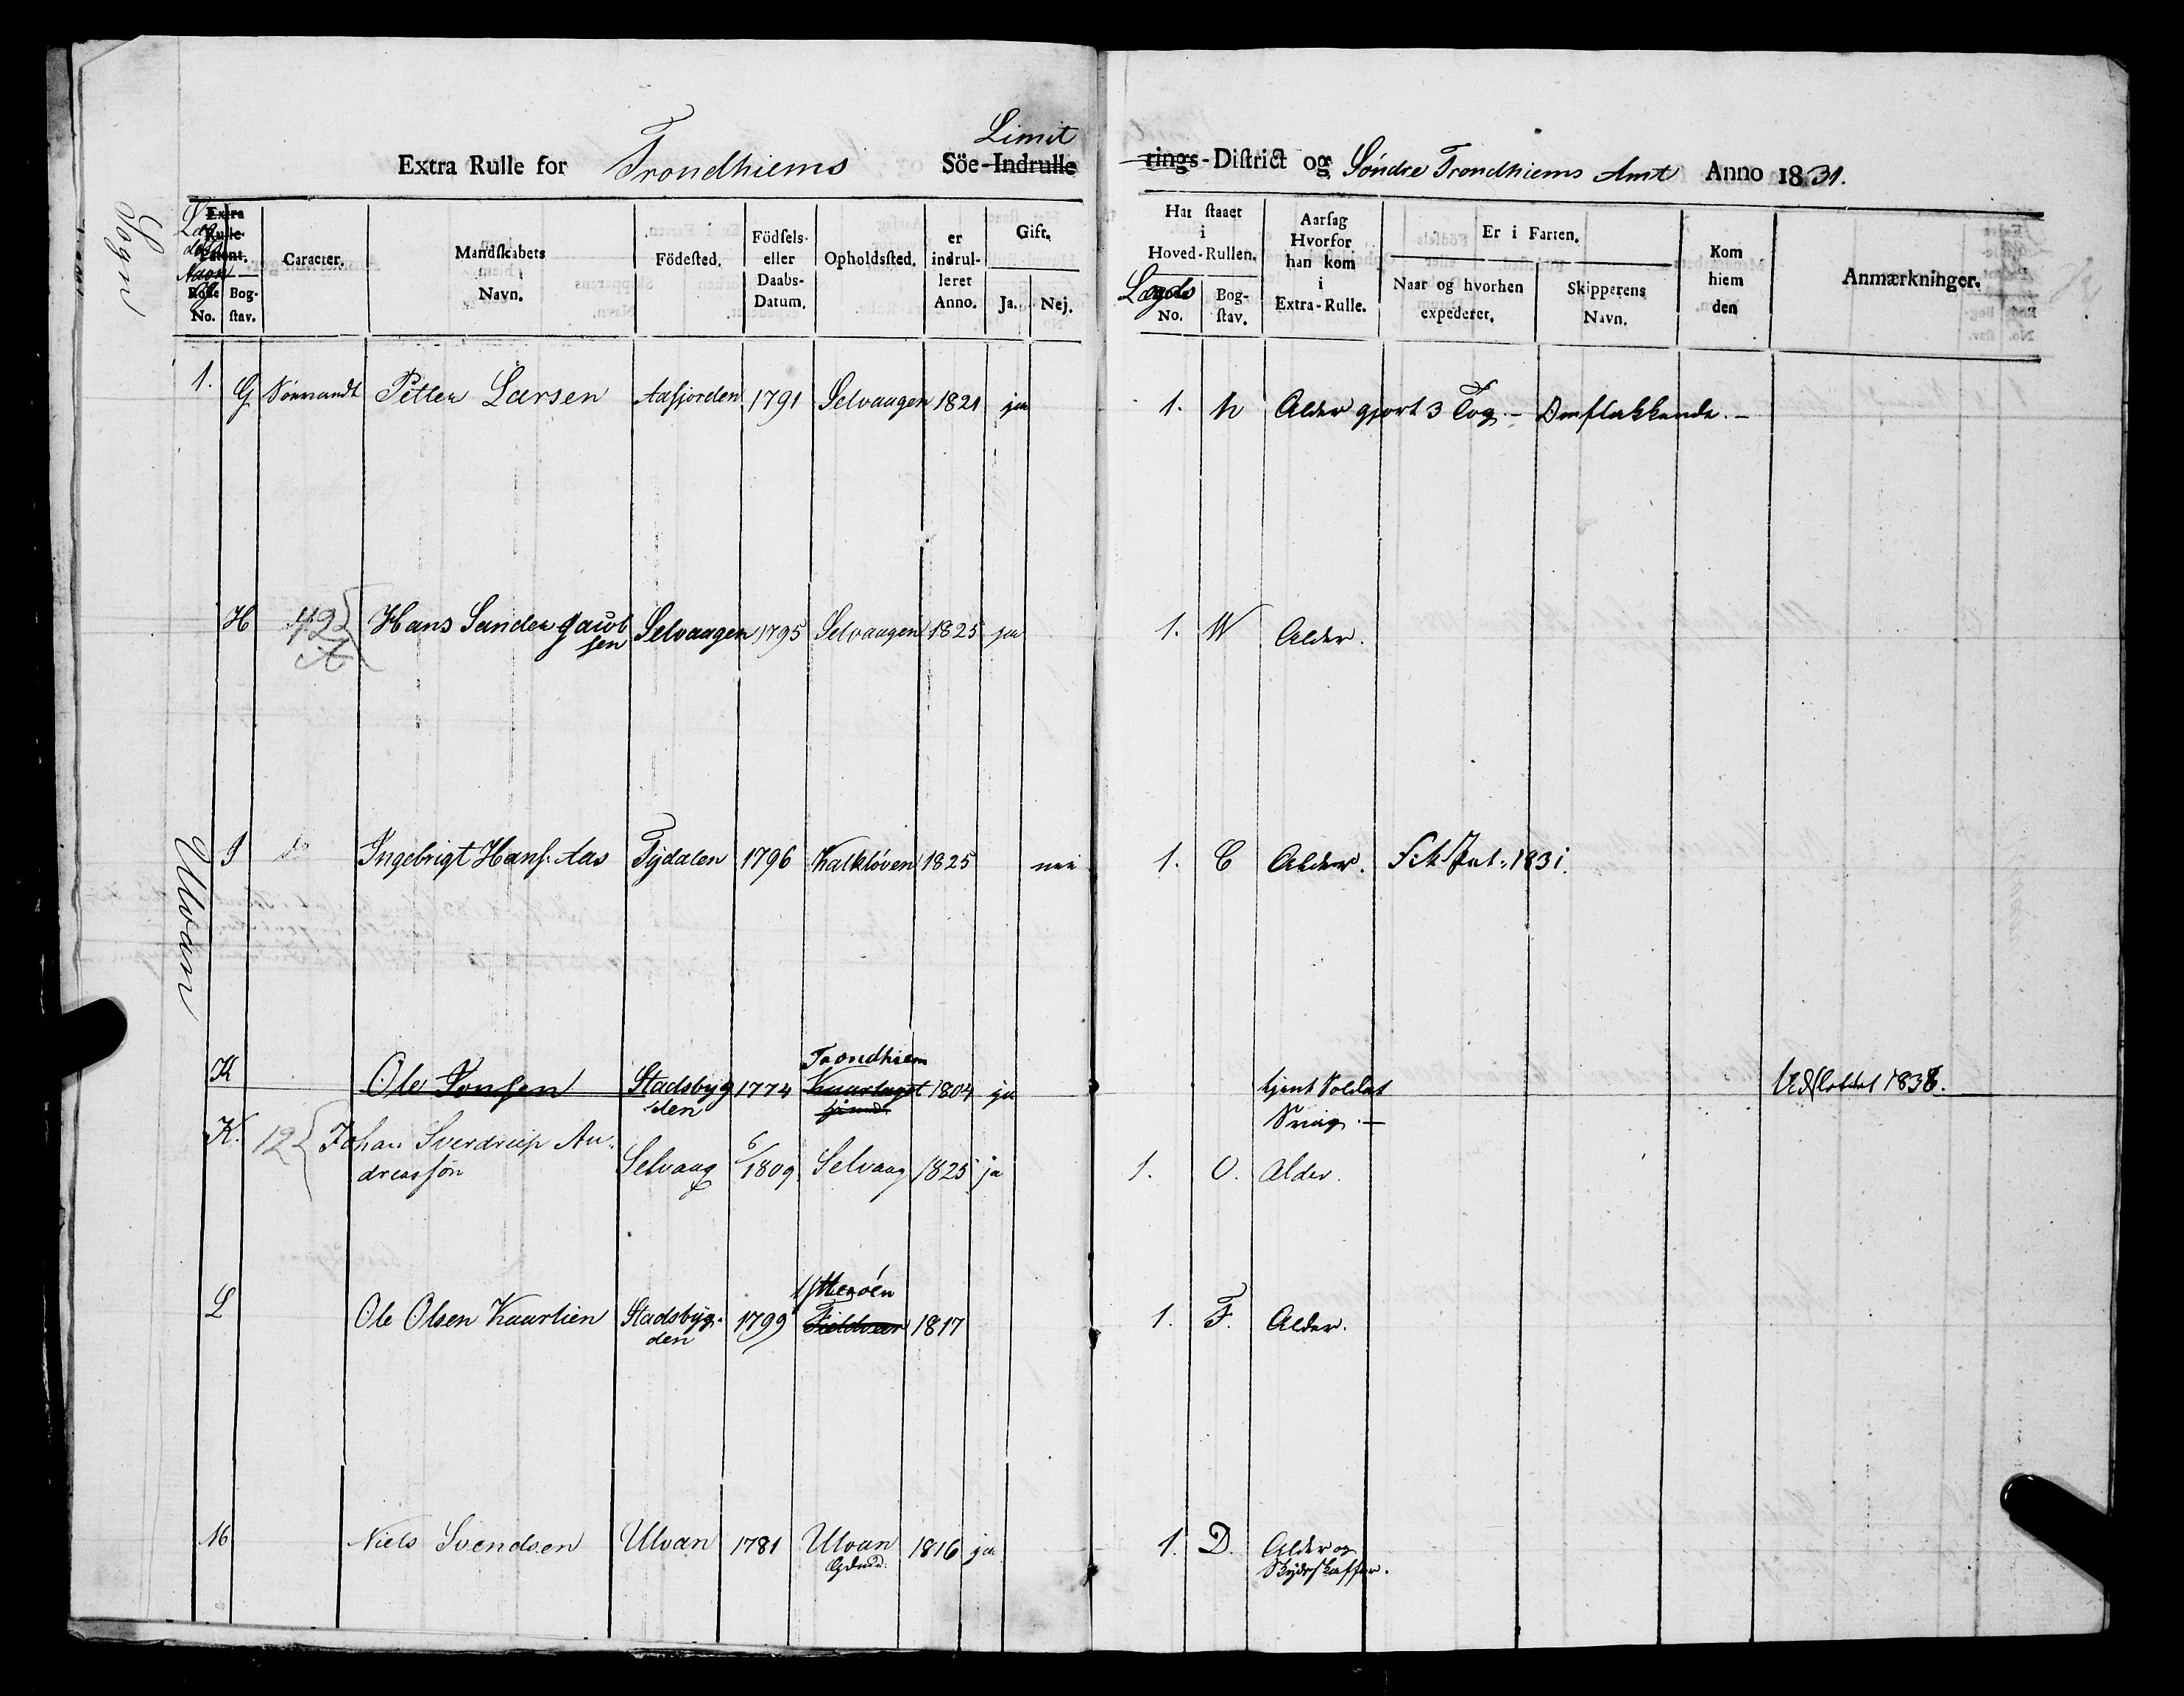 Limit
Extra Rulle for Trondhiems Söe-Indrulle rings-District og Söndre Trondhiems Amt Anno 1831.
Sogn
Extra Rulle Patent. Rode No. Bog-stav. Caracter. Mandskabets Navn. Födested. Födsels- eller Daabs-Datum. Opholdsted. er indrul-leret Anno. Gift. Ja. Nej. Har staaet i Hoved-Rullen. Lægds No. Bog-stav. Aarsag Hvorfor han kom i Extra-Rulle. Er i Farten. Naar og hvorhen expederet. Skipperens Navn. Kom hiem den Anmærkninger.
1. G Söevandt Petter Larsen Aafjorden 1791 Selvaagen 1821 ja 1. N Alder gjort 3 Tog. - Omflakkende. -
H 42 A Hans Sander Jacob sen Selvaagen 1795 Selvaagen 1825 ja 1. W Alder.
Ulvan
I do Ingebrigt Hans. Aas Tydalen 1796 Kalklöven 1825 nei 1. C Alder. 1831.
Trondhiem
K Ole Jonsen Stadsbyg 1774 1804 ja tjent Soldat Udslettet 1838.
den Krig. -
K. 12 Johan Sverdrup An-
dreassön Selvaag 6/1809 Selvaag 1825 ja 1. O. Alder.
Ytteröen
L Ole Olsen Kaarlien Stadsbyg- 1799 Fieldvær 1817 1. F. Alder.
den
M Niels Svendsen Ulvan 1781 Ulvan 1816 ja 1. D. Alder og
Gdmd. Skydsskaffer.